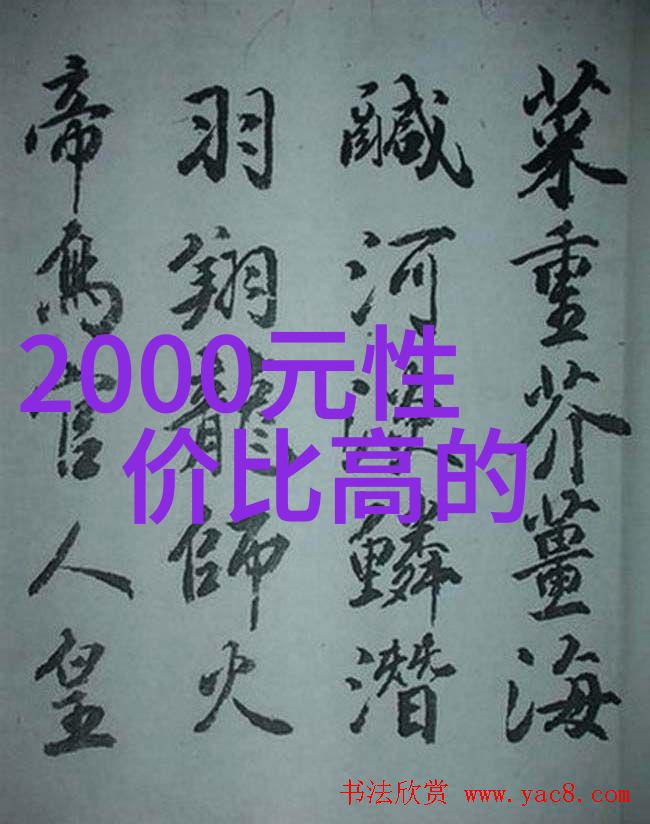 菜重芥薑海
鹹河淡鱗潛
羽翔龍師火
帝鳥官人皇
2000元性
价比高的
书法欣赏 www.yac8.com